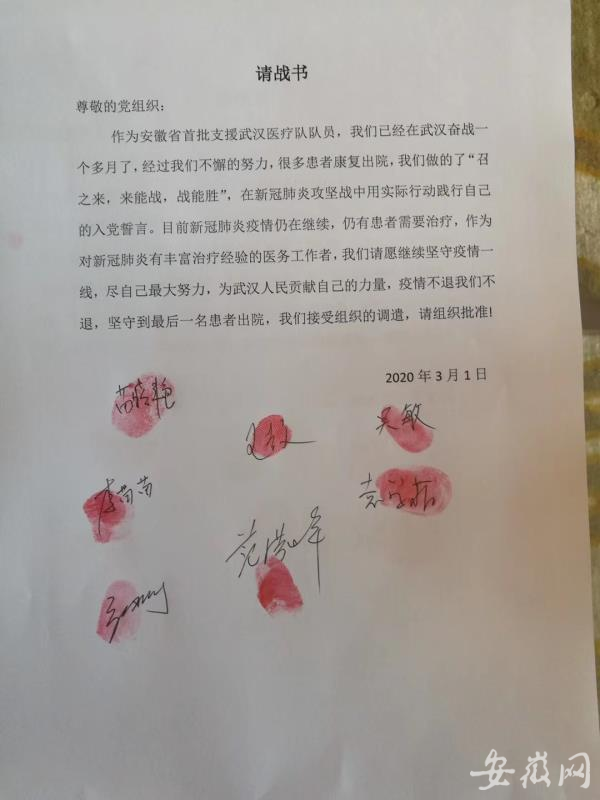 请战书
尊敬的党组织：
作为安徽省首批支援武汉医疗队队员，我们已经在武汉奋战一
个多月了，经过我们不懈的努力，很多患者康复出院，我们做的了“召
之来，来能战，战能胜”，在新冠肺炎攻坚战中用实际行动践行自己
的入党誓言。目前新冠肺炎疫情仍在继续，仍有患者需要治疗，作为
对新冠肺炎有丰富治疗经验的医务工作者，我们请愿继续坚守疫情一
线，尽自己最大努力，为武汉人民贡献自己的力量，疫情不退我们不
退，坚守到最后一名患者出院，我们接受组织的调遣，请组织批准!
2020 年 3 月 1 日
吴敏
李苗苗
安徽网